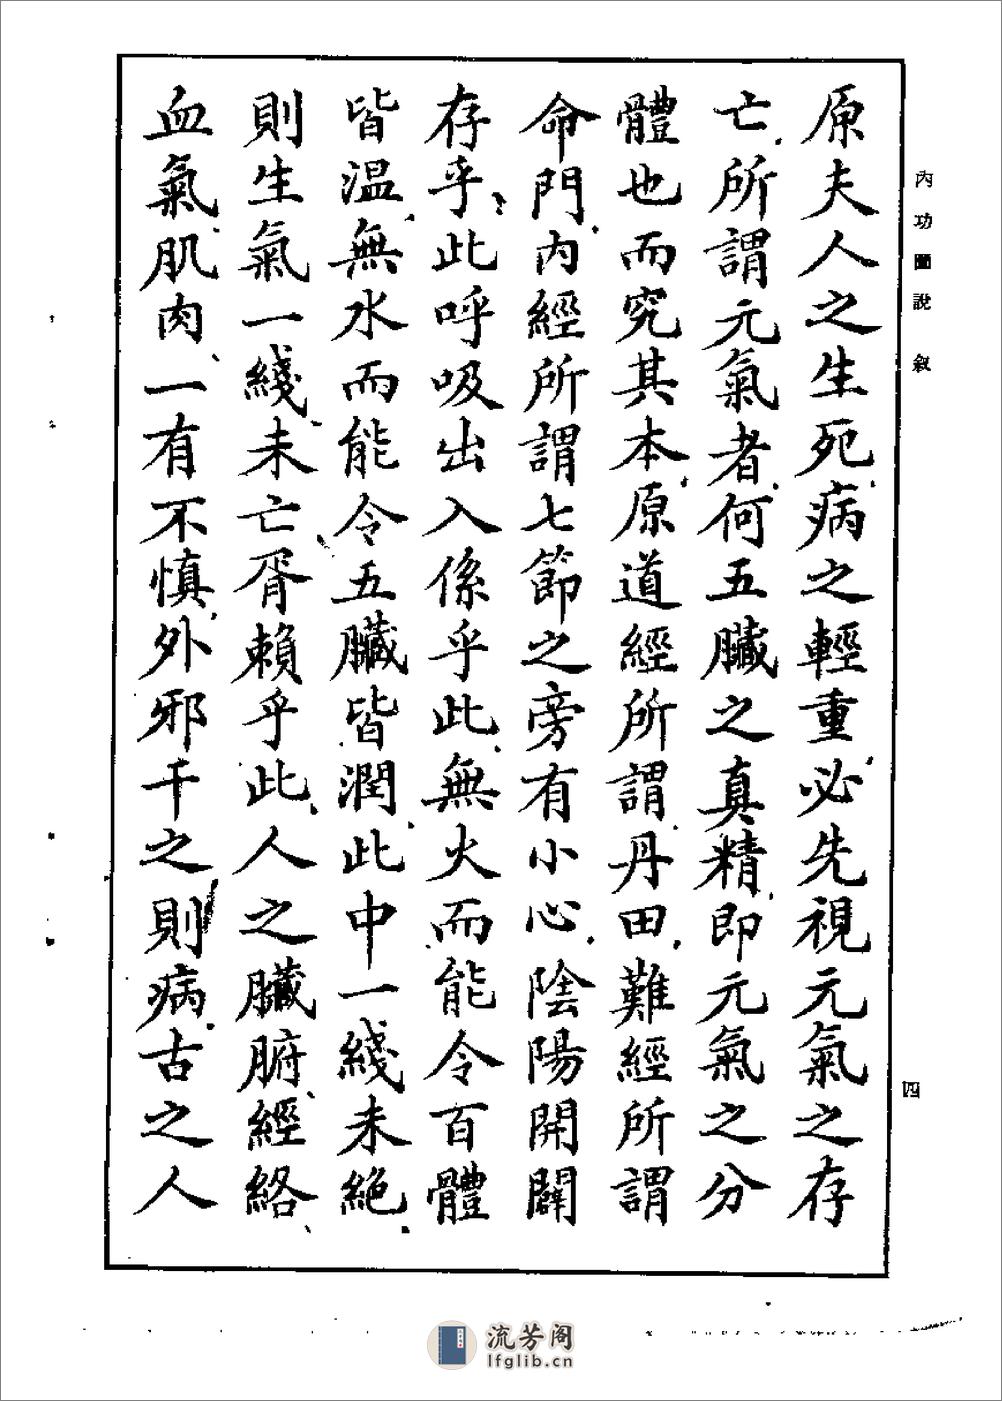 內功圖說 叙
四
原夫人之生死、病之輕重、必先視元氣之存
亡、所謂元氣者、何五臟之真精、即元氣之分
體也而究其本、原道經所謂丹田、難經所謂
命門、内經所謂七節之旁有小心、陰陽開闢
存乎此呼吸出入係乎此、無火而能令百體
皆温、無水而能令五臟皆潤、此中一綫未絶、
則生氣一綫、未亡胥賴乎此、人之臟腑、經絡、
血氣、肌肉、一有不慎、外邪干之則病、古之人
流芳阁
lfglib.cn